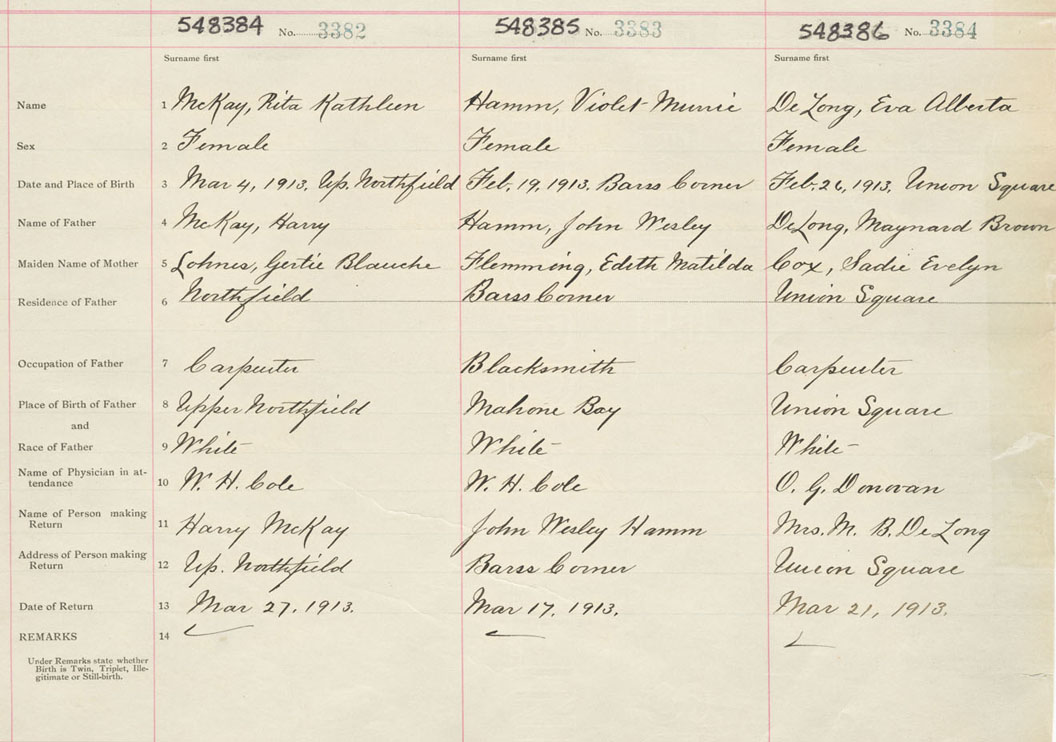 548384 No. 3382 548385 No. 3383 548386 No. 3384
Surname first Surname first Surname first
Name 1 McKay, Rita Kathleen Hamm, Violet Murrie De Long, Eva Alberta
Sex 2 Female Female Female
Date and Place of Birth 3 Mar 4, 1913. Up. Northfield Feb. 19, 1913. Barss Corner Feb. 26, 1913, Union Square
Name of Father 4 McKay, Harry Hamm, John Wesley DeLong, Maynard Brown
Maiden Name of Mother 5 Lohnes, Gertie Blanche Flemming, Edith Matilda Cox, Sadie Evelyn
Residence of Father 6 Northfield Barss Corner Union Square
Occupation of Father 7 Carpenter Blacksmith Carpenter
Place of Birth of Father 8 Upper Northfield Mahone Bay Union Square
and
Race of Father 9 White White White
Name of Physician in at-
tendance 10 W. H. Cole W. H. Cole O. G. Donovan
Name of Person making
Return 11 Harry McKay John Wesley Hamm Mrs. M. B. De Long
Address of Person making
Return 12 Up. Northfield Barss Corner Union Square
Date of Return 13 Mar 27, 1913. Mar 17, 1913. Mar 21, 1913.
REMARKS 14
Under Remarks state whether
Birth is Twin, Triplet, Ille-
gitimate or Still-birth.